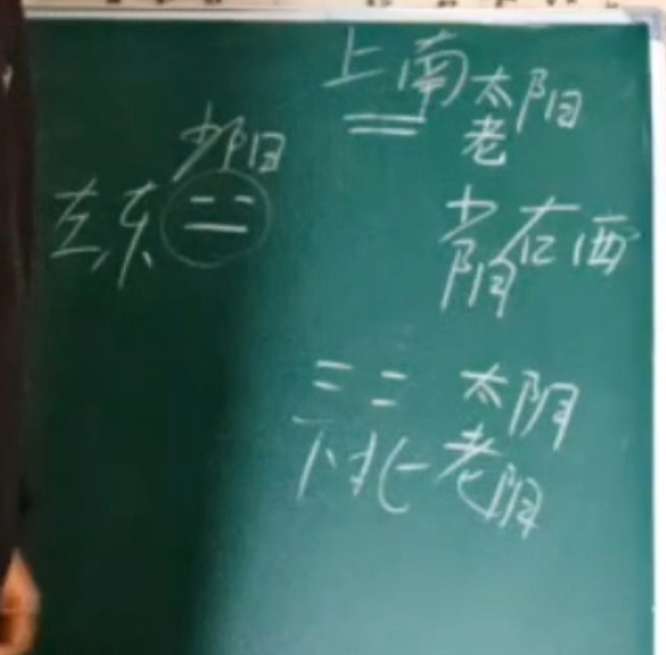 上南太阳
老
少阳
左东
少右西
阴
太阴
下北老阴